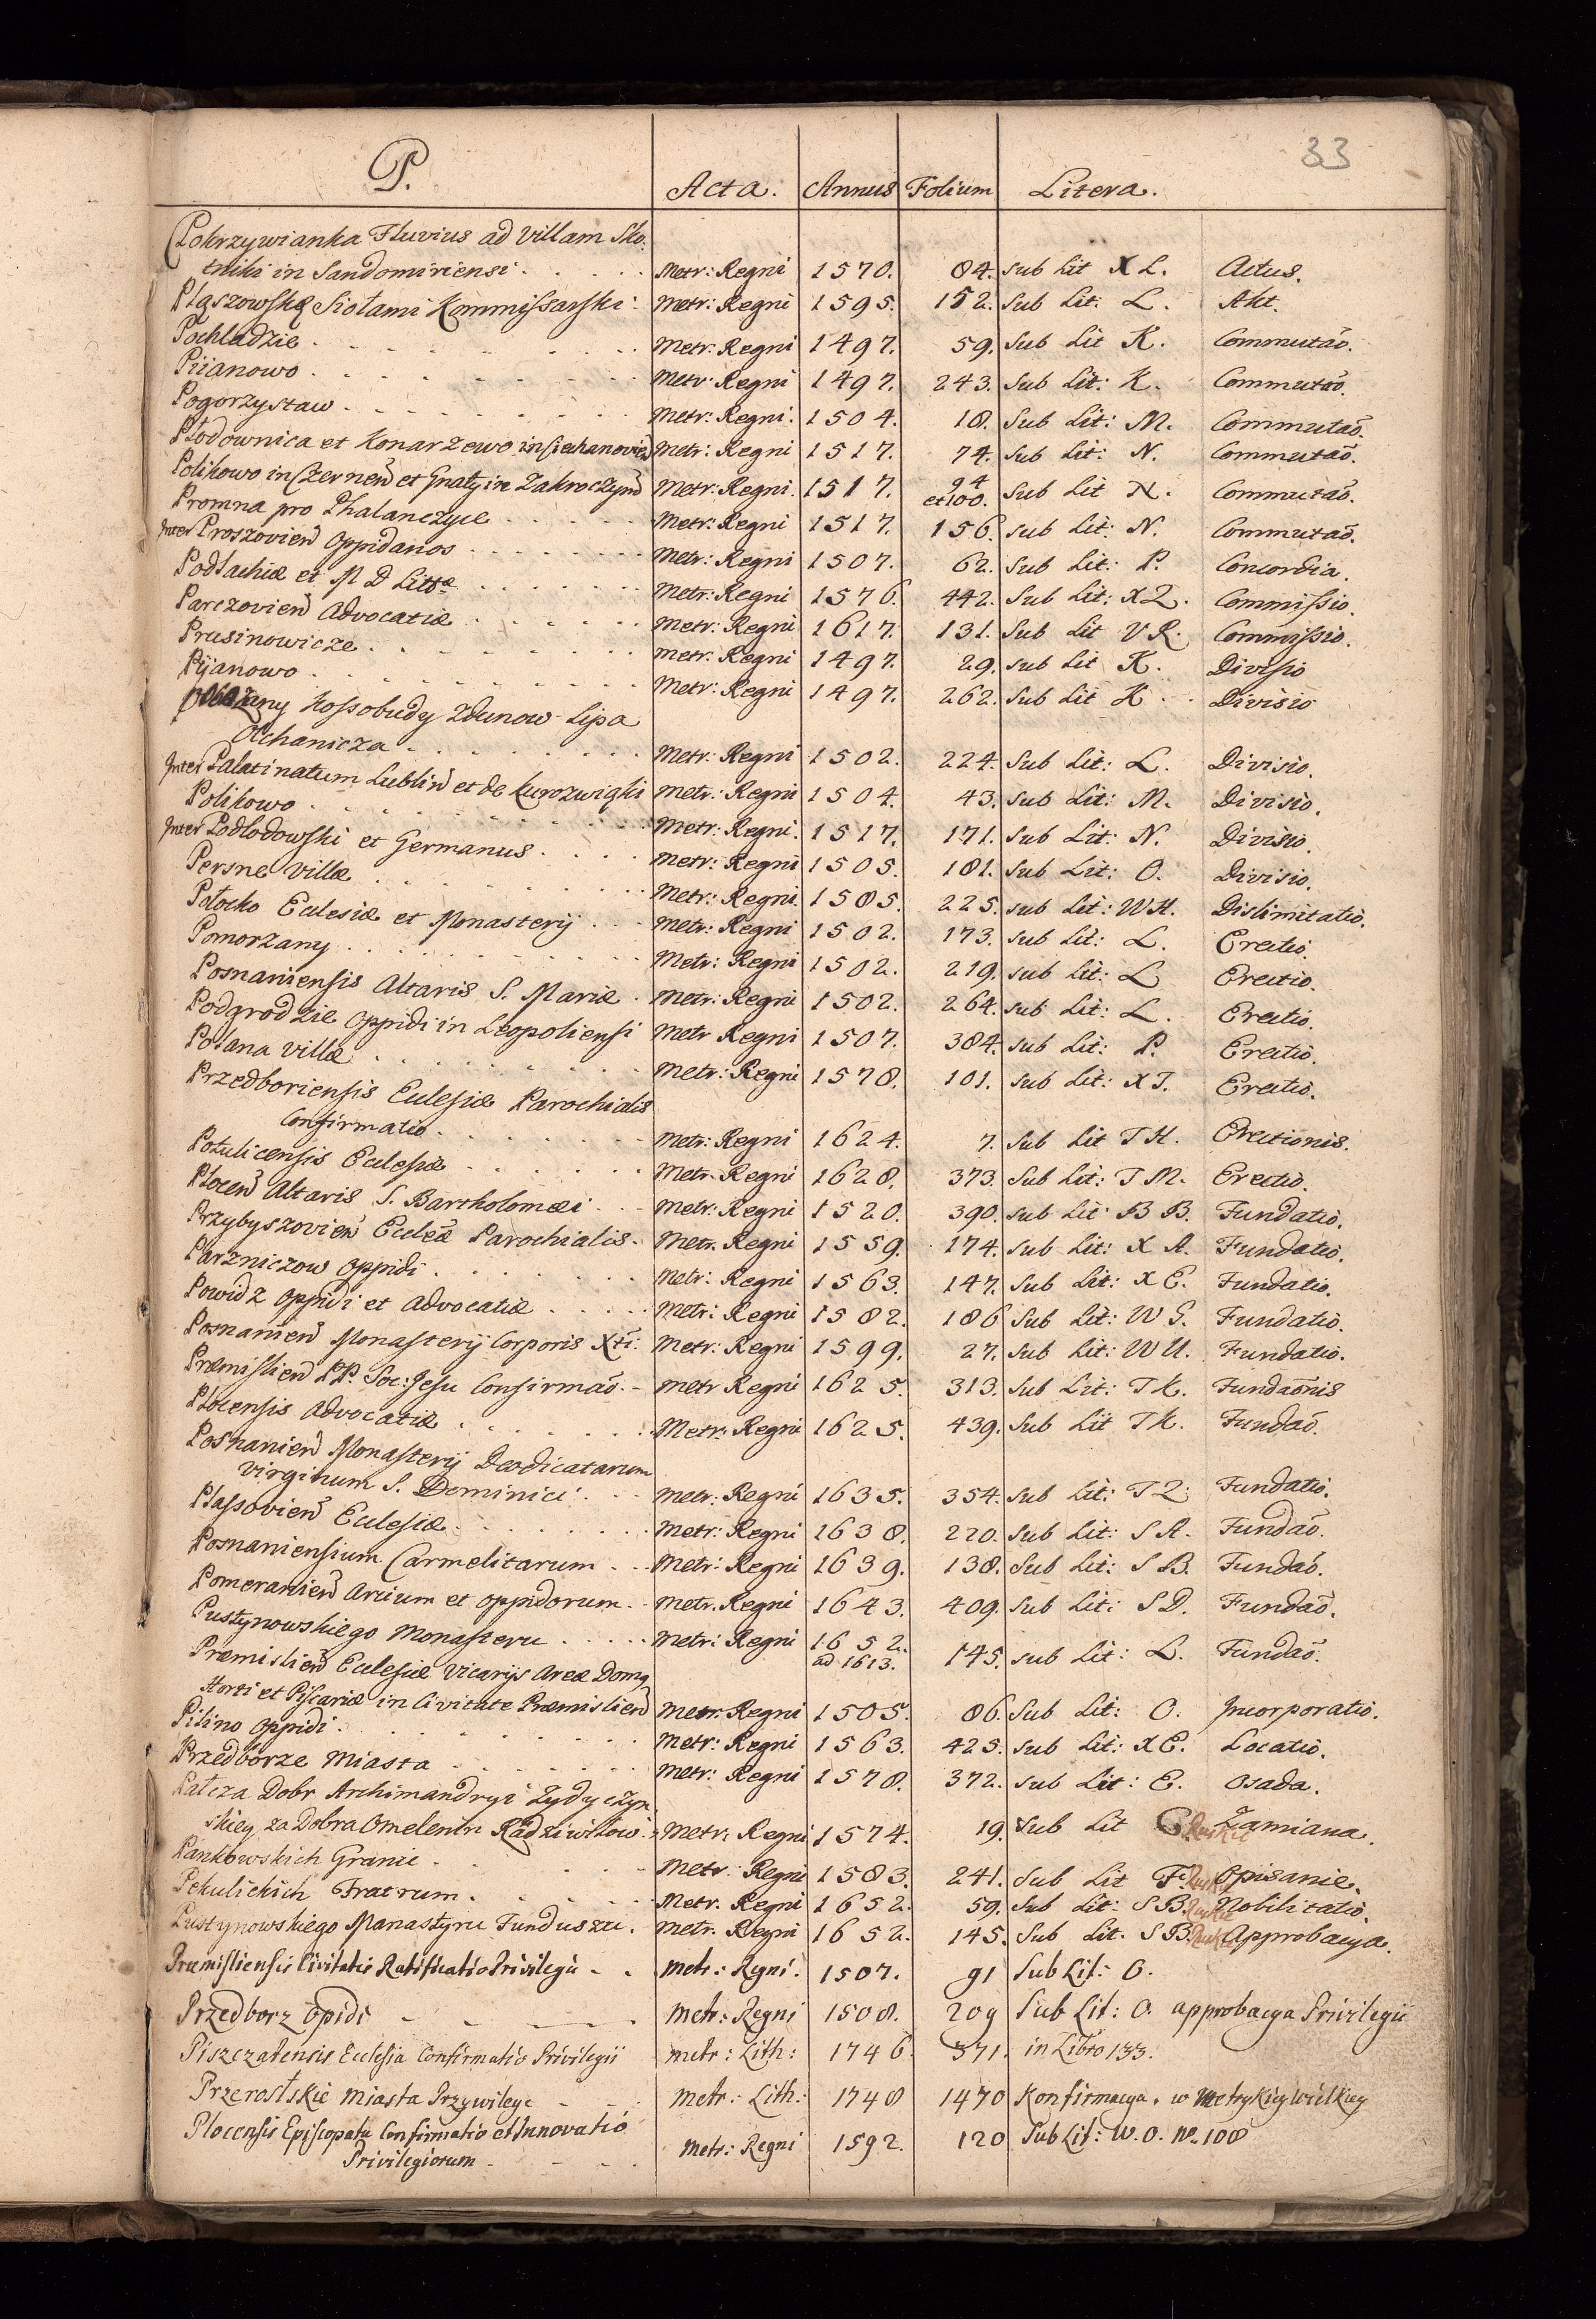 33
P. Acta. Annus Folium Litera.
Pokrzywianka Fluvius ad Villam Sko-
tniki in Sandomiriensi . . . . . Metr: Regni 1570. 84. Sub Lit XL. Actus.
Płaszowską Siołami Kommissarski. Metr: Regni 1595. 152. Sub Lit: L. Akt.
Pochladzie . . . . . . . . Metr: Regni 1497. 59. Sub Lit K. Commutaõ.
Piianowo . . . . . . . . Metr: Regni 1497. 243. Sub Lit: K. Commutaõ.
Pogorzystaw . . . . . . . . Metr: Regni. 1504. 18. Sub Lit: M. Commutaõ.
Płodownica et Konarzewo in Ciechanovien Metr: Regni 1517. 74. Sub Lit: N. Commutaõ.
Polikowo in Czernen et Gnaty in Zakroczyn Metr: Regni. 1517. 94 et 100. Sub Lit N. Commutaõ.
Promna pro Phalanczyce . . . . . Metr: Regni 1517. 156. Sub Lit: N. Commutaõ.
Inter Proszovien Oppidanos . . . . . . . Metr: Regni 1507. 62. Sub Lit: P. Concordia.
Podlachiæ et M D Littæ . . . . . . Metr: Regni 1576. 442. Sub Lit: XZ. Commissio.
Parczovien Advocatiæ . . . . . . Metr: Regni 1617. 131. Sub Lit VR. Commissio.
Prusinowicze . . . . . . . . Metr: Regni 1497. 29. Sub Lit K. Divisio
Pijanowo . . . . . . . . . . Metr: Regni 1497. 262. Sub Lit K . . Divisio
Kossobudy Zdunow Lipa
Olchanicza . . . . . . . . Metr: Regni 1502. 224. Sub Lit: L. Divisio.
Inter Palatinatum Lublin et de Kurozwięki Metr: Regni 1504. 43. Sub Lit: M. Divisio.
Polikowo . . . . . . . . . . Metr: Regni. 1517. 171. Sub Lit: N. Divisio.
Inter Podlodowski et Germanus . . . . Metr: Regni 1505. 181. Sub Lit: O. Divisio.
Persne Villæ . . . . . . . . . Metr: Regni. 1585. 225. Sub Lit: WH. Dislimitatio.
Połocko Ecclesiæ et Monasterij . . . Metr: Regni 1502. 173. Sub Lit: L. Erectio.
Pomorzany . . . . . . . . . Metr: Regni 1502. 219. Sub Lit: L Erectio.
Posnaniensis Altaris S. Mariæ . Metr: Regni 1502. 264. Sub Lit: L. Erectio.
Podgrodzie Oppidi in Leopoliensi Metr Regni 1507. 384. Sub Lit: P. Erectio.
Polana Villæ . . . . . . . . Metr: Regni 1578. 101. Sub Lit: XT. Erectio.
Przedboriensis Eclesiæ Parochialis
Confirmatio . . . . . . . . Metr: Regni 1624. 7. Sub Lit TH. Erectionis.
Potulicensis Eclesiæ . . . . . . Metr: Regni 1628. 373. Sub Lit: TM. Erectio.
Plocen Altaris S. Bartholomæi . . . Metr: Regni 1520. 390. Sub Lit BB. Fundatio.
Przybyszovien Ecclæ Parochialis. Metr. Regni 1559. 174. Sub Lit: XA. Fundatio.
Parzniczow Oppidi . . . . . . . Metr: Regni 1563. 147. Sub Lit: XE. Fundatio.
Powidz Oppidi et Advocatiæ . . . . Metr: Regni 1582. 186 Sub Lit: WG. Fundatio.
Posnanien Monasterij Corporis Xti: Metr: Regni 1599. 27. Sub Lit: WU. Fundatio.
Præmislien PP. Soc: Jesu Confirmaõ. - Metr Regni 1625. 313. Sub Lit: TK. Fundaõnis
Plocensis Advocatiæ . . . . . . Metr: Regni 1625. 439. Sub Lit TK. Fundaõ.
Posnanien Monasterij Deodicatarum
Virginum S. Dominici . . . Metr: Regni 1635. 354. Sub Lit: TZ. Fundatio.
Plassovien Eclesiæ . . . . . . . . Metr: Regni 1638. 220. Sub Lit: SA. Fundaõ.
Posnaniensium Carmelitarum . . . Metr: Regni 1639. 138. Sub Lit: SB. Fundaõ.
Pomeranien Arcium et Oppidorum . . Metr. Regni 1643. 409. Sub Lit: SD. Fundaõ.
Pustynowskiego Monasteru . . . . . Metr: Regni 1652. ad 1613. 145. Sub Lit: L. Fundaõ.
Præmislien Eclesiæ Vicarijs Areæ Domg
Horti et Piscariæ in Civitate Præmislien Metr. Regni 1505. 86. Sub Lit: O. Incorporatio.
Pilino Oppidi . . . . . . . . Metr: Regni 1563. 425. Sub Lit: XE. Locatio.
Przedborze Miasta . . . . . . . Metr: Regni 1578. 372. Sub Lit: E. Osada.
Połcza Dobr Archimandryi Zydyczyn
skiey za Dobra Omelenin Radziwiłow: Metr: Regni 1574. 19. Sub Lit E Ruskie Zamiana.
Pankowskich Granic . . . . . . Metr: Regni 1583. 241. Sub Lit F. Ruskie Opisanie.
Pekulickich Fratrum . . . . . . Metr. Regni 1652. 59. Sub Lit: SB. Ruskie Nobilitatio.
Pustynowskiego Manastyru Funduszu . Metr. Regni 1652. 145. Sub Lit. SB. Ruskie Approbacya.
Præmisliensis Civitatis Ratificatio Privilegii - . Metr: Regni. 1507. 91 Sub Lit: O.
Przedborz Opidi - - - . Metr: Regni 1508. 209 Sub Lit: O. approbacya Privilegii
Piszczatensis Ecclesia Confirmatio Privilegii Metr: Lith: 1746 371. in Libro 133.
Przerostskie miasta Przywileye - - . Metr: Lith: 1748 1470 Konfirmacya. w Metrykiey Wielkiey
Plocensis Episcopatu Confirmatio et Innovatio
Privilegiorum - - - . Metr: Regni 1592. 120 Sub Lit: W. O. No. 108